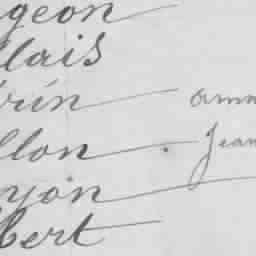 geon
llais
rin
ama
llon
Jean
yon
bert